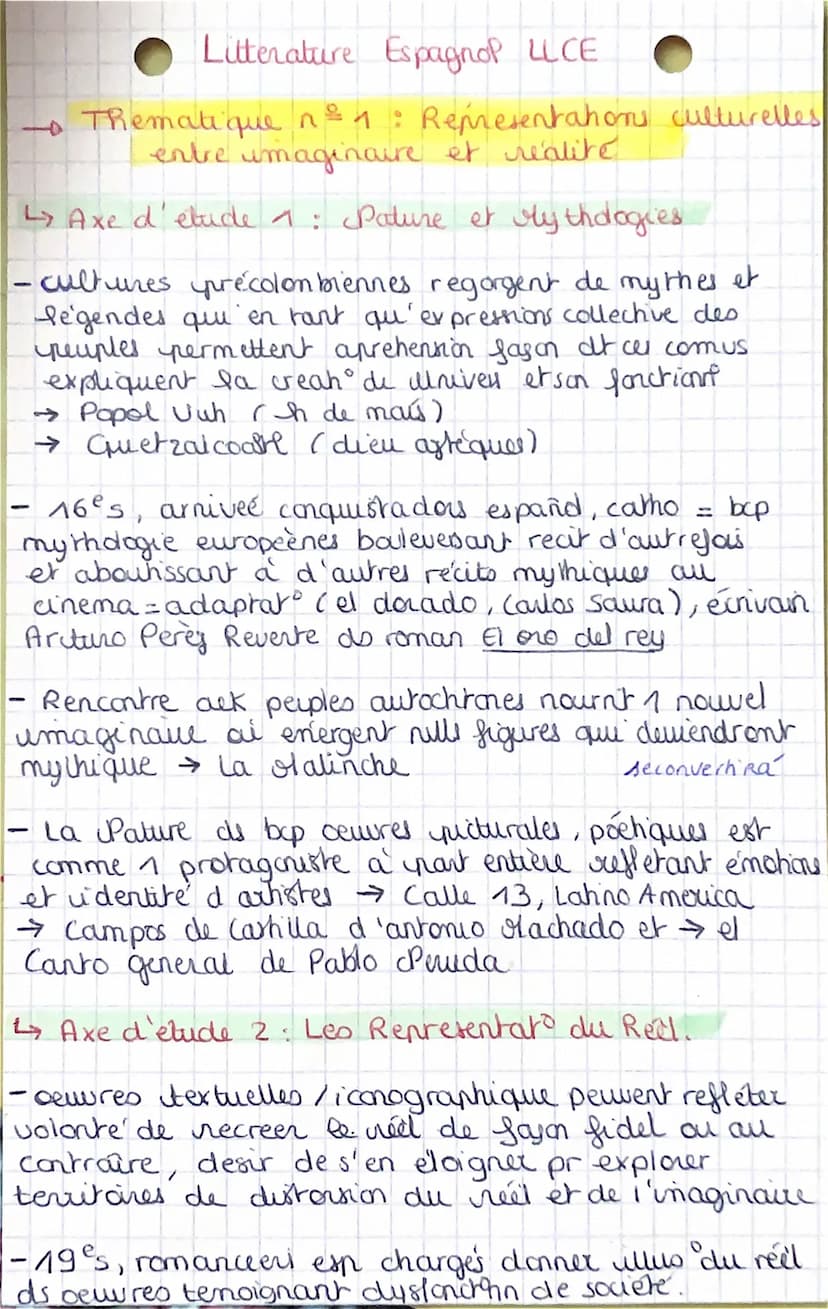 Litterature Espagnol LLCE
→ Thématique nº 1 : Représentations culturelles
entre imaginaire et réalité
↳ Axe d'etude 1 : Nature et Mythologies
- cultures précolombiennes regorgent de mythes et
légendes qui en tant qu'expressions collective des
peuples permettent aprehension façon dt ces comus
expliquent la creat° de univers et son fonctionnt
→ Popol Vuh ( h de maïs)
→ Quetzalcoatl (dieu aztèques)
- 16e s, arriveé conquistadors español, catho = bcp
mythologie européènes bouleversant recit d'autrefois
et aboutissant à d'autres récits mythiques au
cinema = adaptat° (el dorado, Carlos Saura), écrivain
Arturo Perèz Reverte ds roman El oro del rey
- Rencontre avk peuples autochtones nourrit 1 nouvel
imaginaire où émergent nvlls figures qui deviendront
mythique → La Malinche
se convertirá
- La Nature ds bcp oeuvres picturales, poétiques est
comme 1 protagoniste à part entière reflétant émotions
et identité d artistes → Calle 13, Latino America
→ Campos de Castilla d'antonio Machado et → el
Canto general de Pablo Neruda
↳ Axe d'etude 2 : Les Representat° du Reél.
- oeuvres textuelles / iconographique peuvent refléter
volonté de recreer le réel de façon fidel ou au
contraire, desir de s'en éloigner pr explorer
territoires de distorsion du réel et de l'imaginaire
- 19e s, romanciers esp chargés donner illus° du réel
ds oeuvres temoignant dysfonction de société.